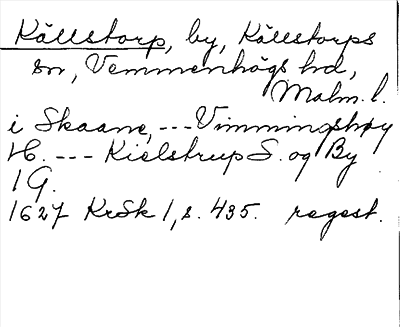 Källstorp, by, Källstorps
sn, Vemmenhögs hd,
Malm. l.
i Skaane, --- Vimmingshøy
H. --- Kielstrup S. og By
1 G.
1627 KrSk 1, s. 435. regest.